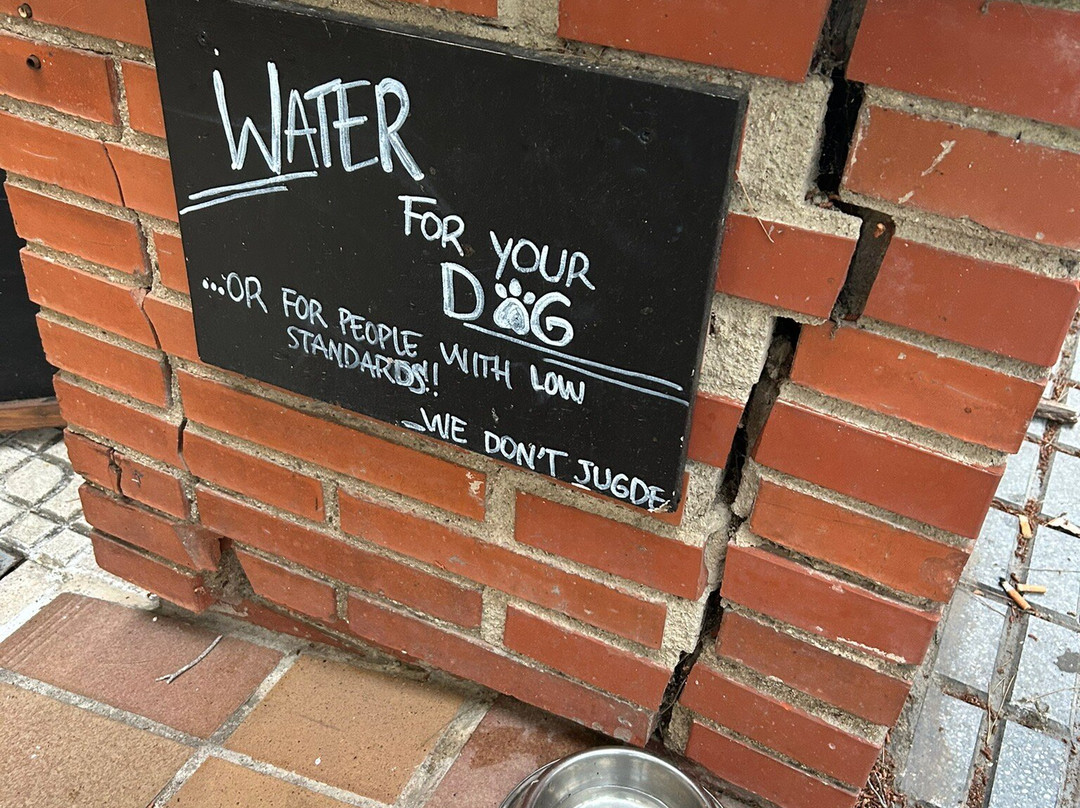 WATER
FOR YOUR
DOG
...OR FOR PEOPLE WITH LOW
STANDARDS!!
_WE DON'T JUGDE